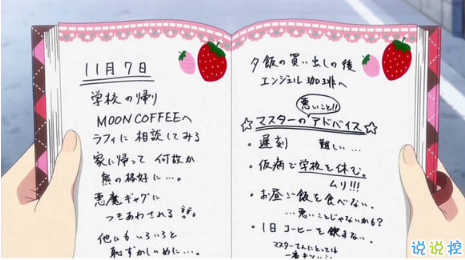 11月7日
学校の帰り
MOON COFFEEへ
ラフィに相談してみる
家に帰って何故か
熊の格好に…。
悪魔ギャグに
つきあわされる
他にもいろいろと
恥ずかしいめに…。
夕飯の買い出しの後
エンジェル珈琲へ
悪いこと!!
☆マスターのアドバイス☆
・遅刻 難しい…
・仮病で学校を休む。
ムリ!!!
・お昼ご飯を食べない。
…悪いことじゃないかも?
・1日コーヒーを飲まない。
マスターさんにとっては
一番キツい
说说控